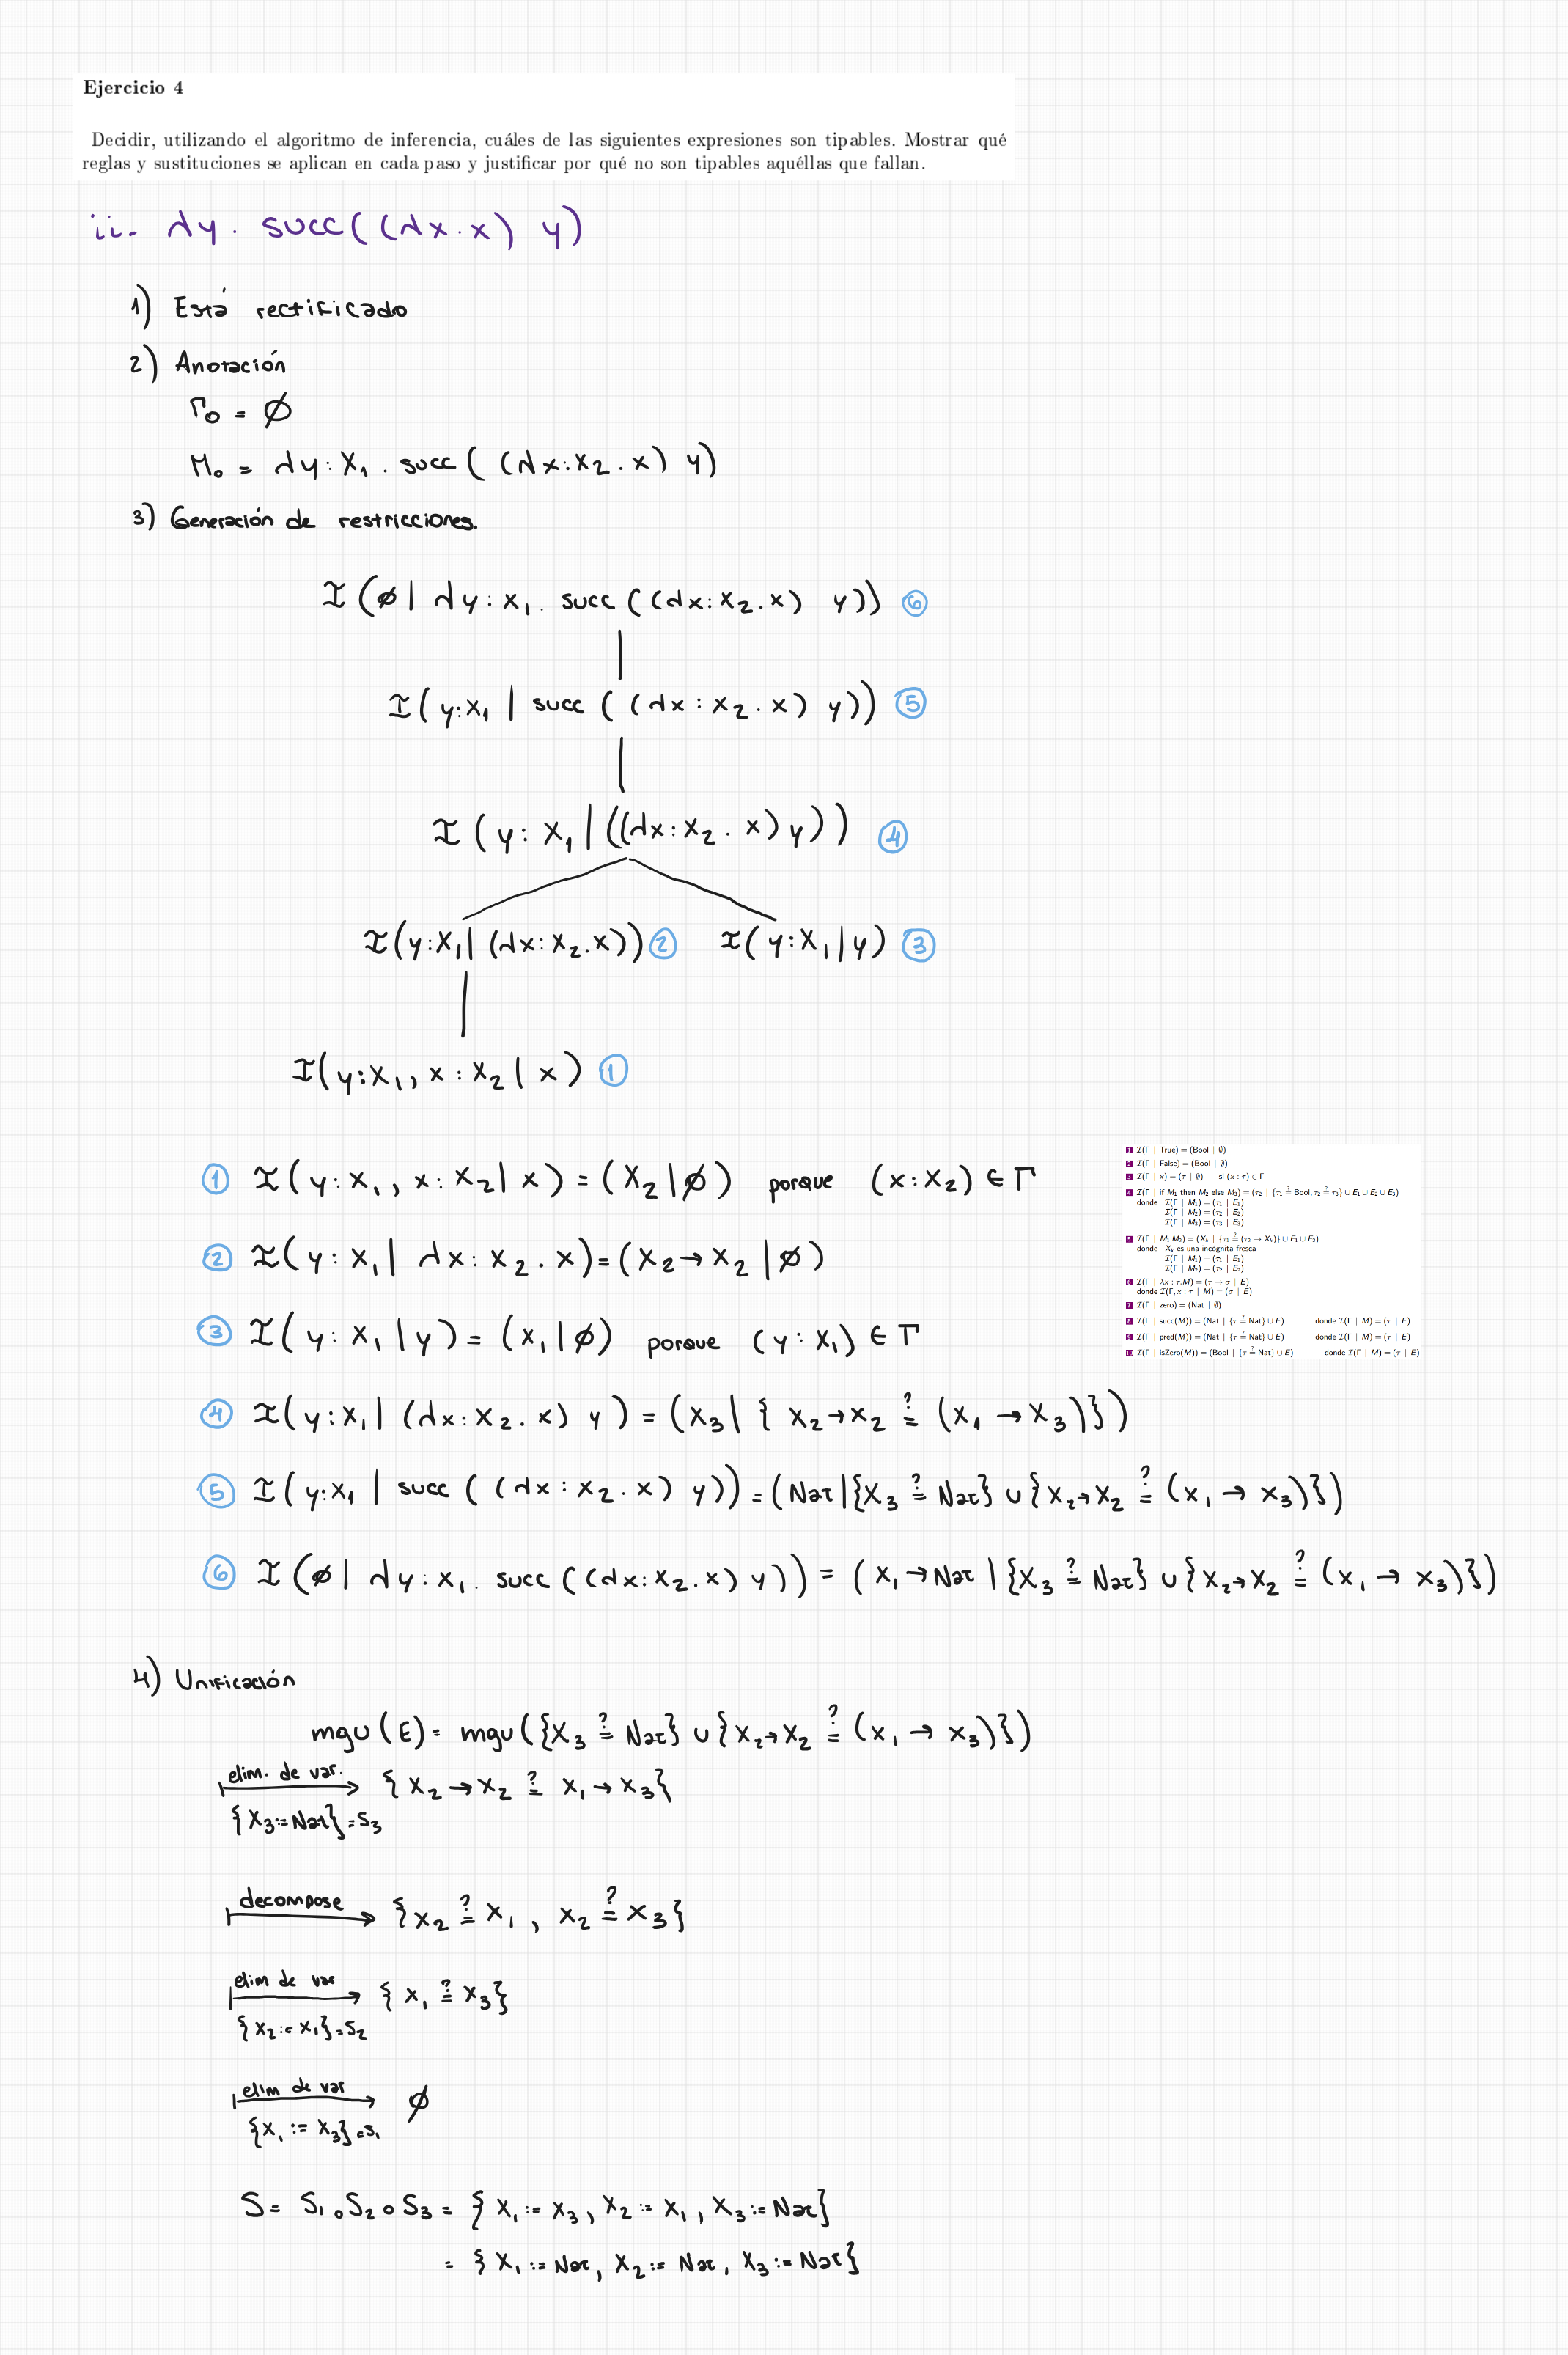 Ejercicio 4
Decidir, utilizando el algoritmo de inferencia, cuáles de las siguientes expresiones son tipables. Mostrar qué
reglas y sustituciones se aplican en cada paso y justificar por qué no son tipables aquéllas que fallan.
ii- λy. succ((λx.x) y)
1) Está rectificado
2) Anotación
Γ₀ = ∅
M₀ = λy:X₁. succ((λx:X₂.x) y)
3) Generación de restricciones.
I(∅ | λy:X₁. succ((λx:X₂.x) y)) ⑥
I(y:X₁ | succ((λx:X₂.x) y)) ⑤
I(y:X₁ | ((λx:X₂.x) y)) ④
I(y:X₁ | (λx:X₂.x)) ② I(y:X₁ | y) ③
I(y:X₁, x:X₂ | x) ①
① I(y:X₁, x:X₂ | x) = (X₂ | ∅) porque (x:X₂) ∈ Γ
② I(y:X₁ | λx:X₂.x) = (X₂ → X₂ | ∅)
③ I(y:X₁ | y) = (X₁ | ∅) porque (y:X₁) ∈ Γ
④ I(y:X₁ | (λx:X₂.x) y) = (X₃ | { X₂→X₂ ≟ (X₁ → X₃)})
⑤ I(y:X₁ | succ((λx:X₂.x) y)) = (Nat | {X₃ ≟ Nat} ∪ {X₂→X₂ ≟ (X₁ → X₃)})
⑥ I(∅ | λy:X₁. succ((λx:X₂.x) y)) = (X₁ → Nat | {X₃ ≟ Nat} ∪ {X₂→X₂ ≟ (X₁ → X₃)})
1 I(Γ | True) = (Bool | ∅)
2 I(Γ | False) = (Bool | ∅)
3 I(Γ | x) = (τ | ∅) si (x : τ) ∈ Γ
4 I(Γ | if M₁ then M₂ else M₃) = (τ₂ | {τ₁ ≟ Bool, τ₂ ≟ τ₃} ∪ E₁ ∪ E₂ ∪ E₃)
donde I(Γ | M₁) = (τ₁ | E₁)
I(Γ | M₂) = (τ₂ | E₂)
I(Γ | M₃) = (τ₃ | E₃)
5 I(Γ | M₁ M₂) = (Xₖ | {τ₁ ≟ (τ₂ → Xₖ)} ∪ E₁ ∪ E₂)
donde Xₖ es una incógnita fresca
I(Γ | M₁) = (τ₁ | E₁)
I(Γ | M₂) = (τ₂ | E₂)
6 I(Γ | λx : τ.M) = (τ → σ | E)
donde I(Γ, x : τ | M) = (σ | E)
7 I(Γ | zero) = (Nat | ∅)
8 I(Γ | succ(M)) = (Nat | {τ ≟ Nat} ∪ E) donde I(Γ | M) = (τ | E)
9 I(Γ | pred(M)) = (Nat | {τ ≟ Nat} ∪ E) donde I(Γ | M) = (τ | E)
10 I(Γ | isZero(M)) = (Bool | {τ ≟ Nat} ∪ E) donde I(Γ | M) = (τ | E)
4) Unificación
mgu(E) = mgu({X₃ ≟ Nat} ∪ {X₂→X₂ ≟ (X₁ → X₃)})
elim. de var. { X₂ → X₂ ≟ X₁ → X₃}
{X₃:=Nat} = S₃
decompose {X₂ ≟ X₁, X₂ ≟ X₃}
elim de var { X₁ ≟ X₃}
{X₂ := X₁} = S₂
elim de var ∅
{X₁ := X₃} = S₁
S = S₁∘S₂∘S₃ = { X₁ := X₃, X₂ := X₁, X₃ := Nat}
= { X₁ := Nat, X₂ := Nat, X₃ := Nat}